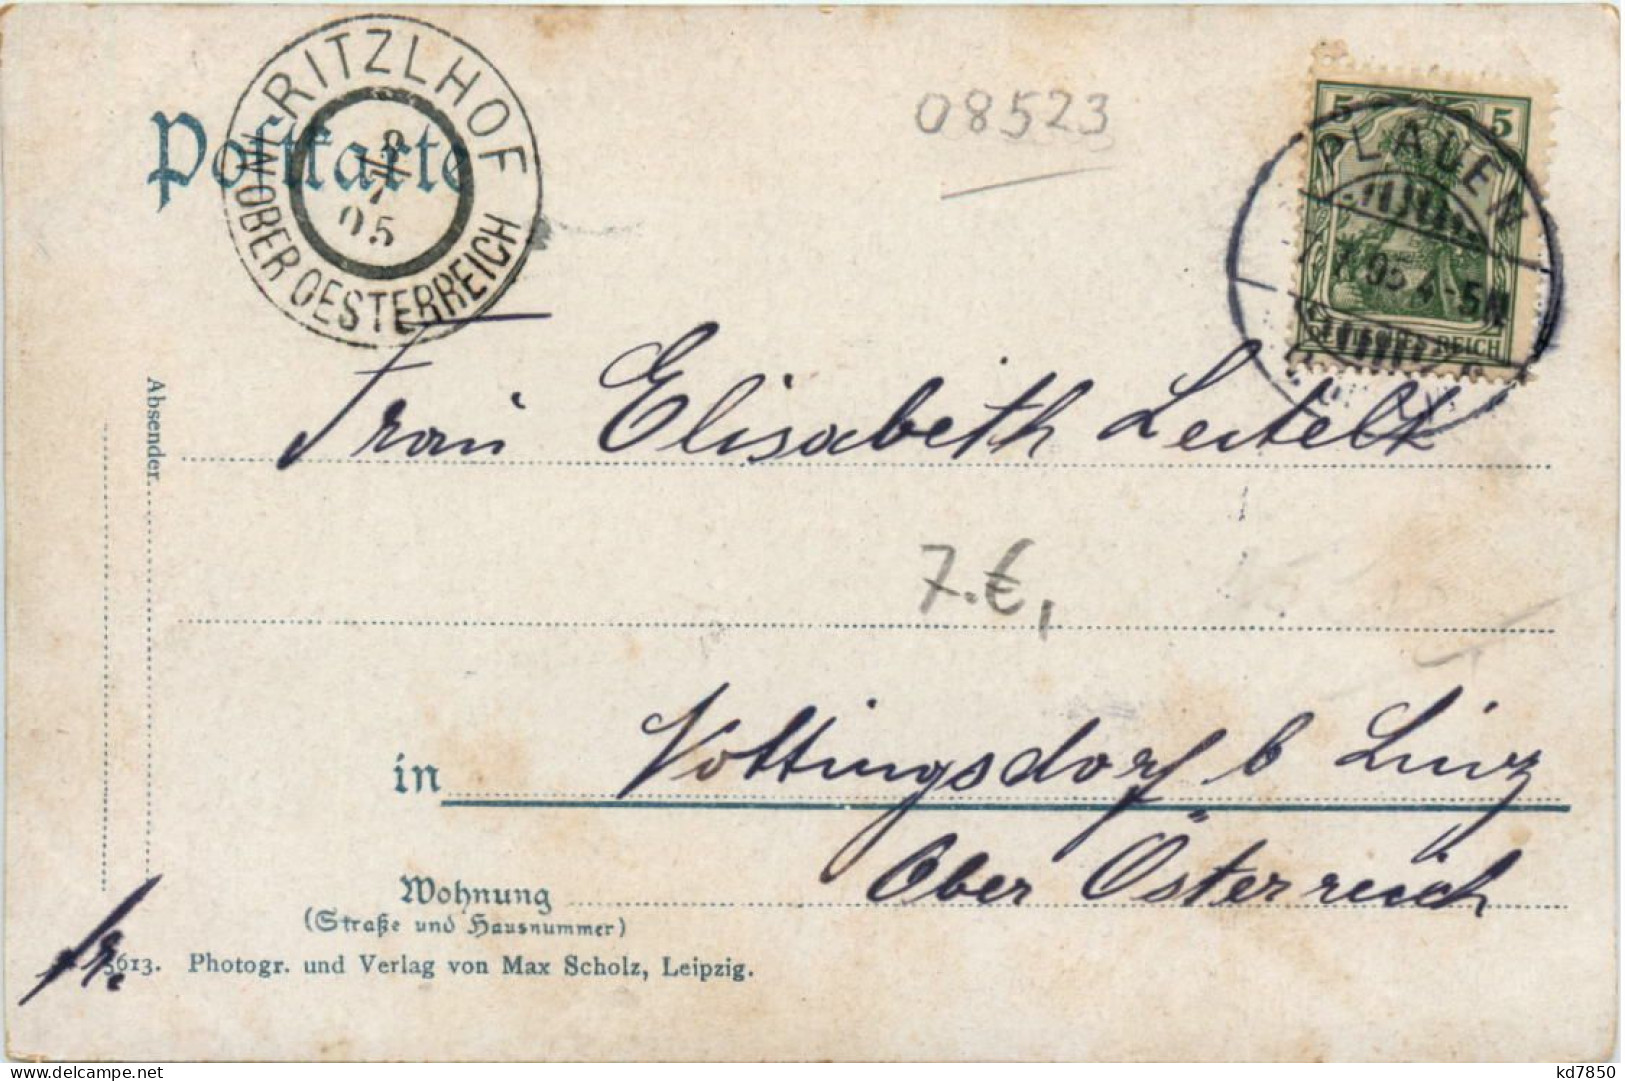 RITZLHOF
IN OBER OESTERREICH
8
7
05
Postkarte
08523
5 5
PLAUEN
7.7.05.4-5N
DEUTSCHES REICH
Absender.
Frau Elisabeth Leitelt
7.€,
in Nottingsdorf b Linz
Ober Österreich
Wohnung
(Straße und Hausnummer)
fr.
5613. Photogr. und Verlag von Max Scholz, Leipzig.
kd7850